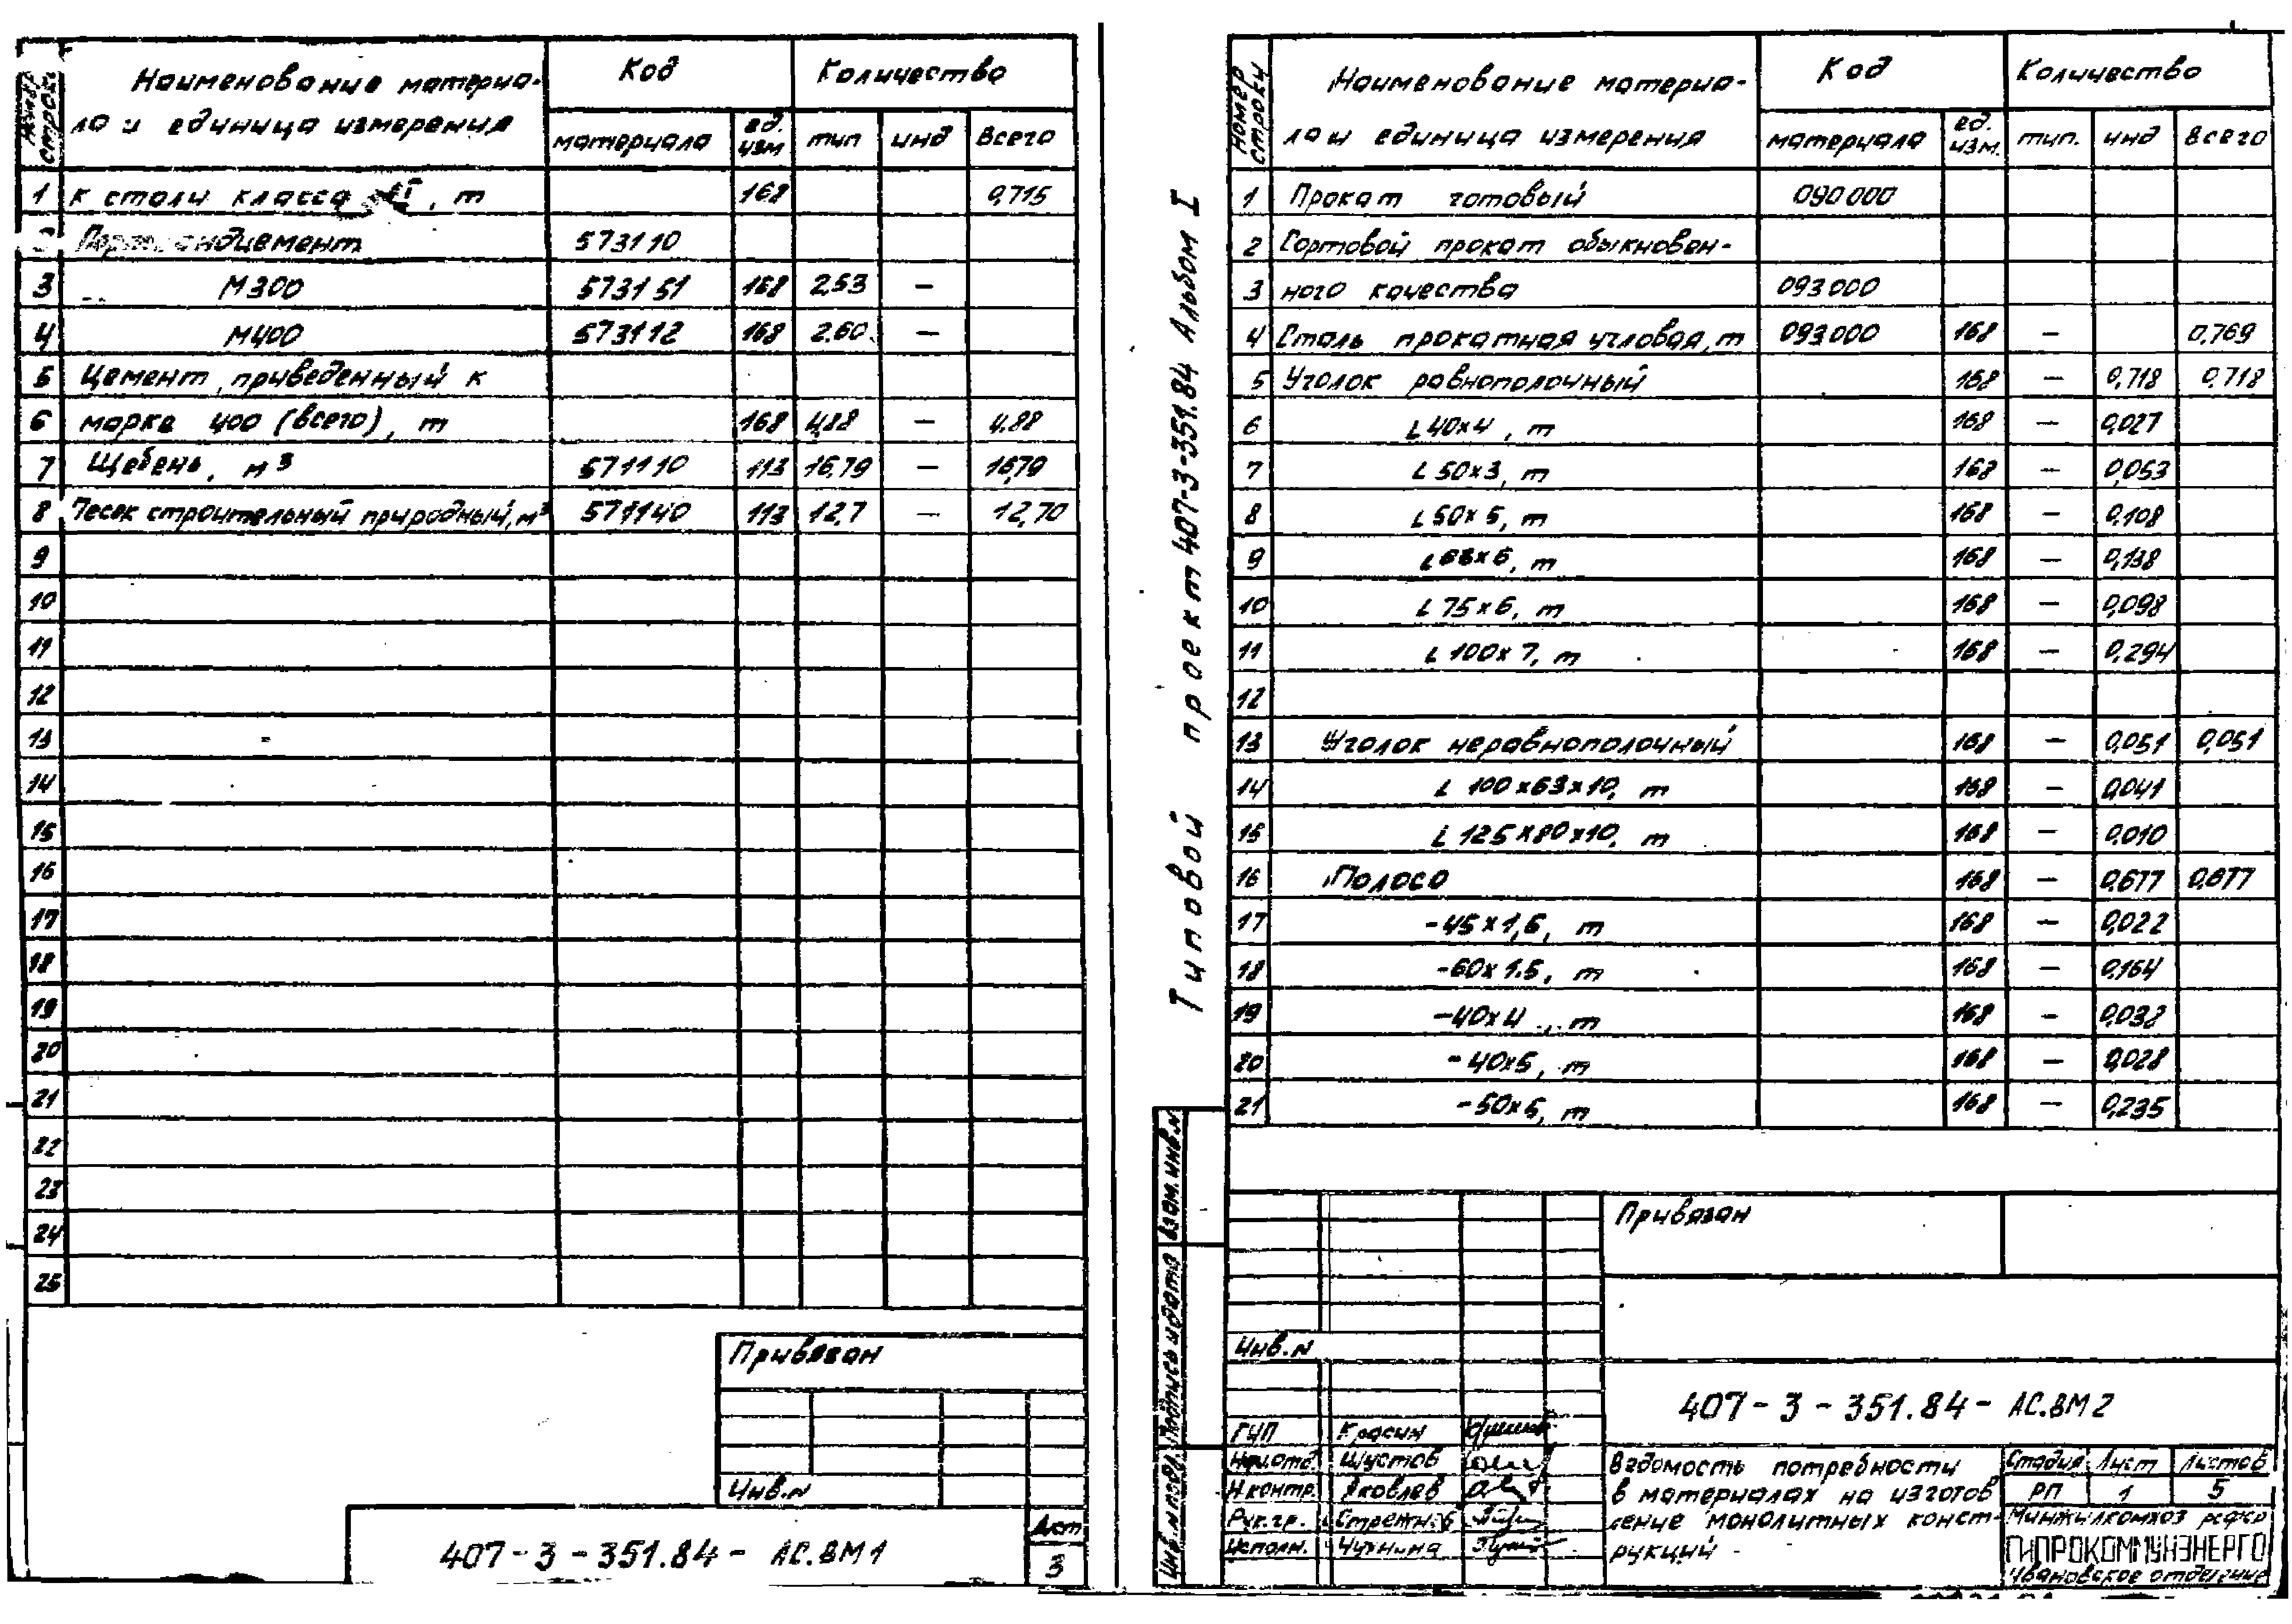 Номер строки | Наименование материа- | Код | Количество
ла и единица измерения | материала | ед. изм | тип | инд | всего
1 к стали класса , т 168 0,715
2 573110
3 М300 573151 168 2,53 —
4 М400 573112 168 2.60 —
5 Цемент, приведенный к
6 марке 400 (всего), т 168 4,88 — 4.88
7 Щебень, м³ 571110 113 16,79 — 16,79
8 Песок строительный природный, м³ 571140 113 12,7 — 12,70
9
10
11
12
13
14
15
16
17
18
19
20
21
22
23
24
25
Привязан
Инв.N
407-3-351.84- АС.ВМ1
Лист
3
Типовой проект 407-3-351.84 Альбом I
Номер строки | Наименование материа- | Код | Количество
ла и единица измерения | материала | ед. изм. | тип. | инд | всего
1 Прокат готовый 090000
2 Сортовой прокат обыкновен-
3 ного качества 093000
4 Сталь прокатная угловая, т 093000 168 — 0,769
5 Уголок равнополочный 168 — 0,718 0,718
6 L 40х4, т 168 — 0,027
7 L 50х3, т 168 — 0,053
8 L 50х5, т 168 — 0,108
9 L 63х6, т 168 — 0,138
10 L 75х6, т 168 — 0,098
11 L 100х7, т 168 — 0,294
12
13 Уголок неравнополочный 168 — 0,051 0,051
14 L 100х63х10, т 168 — 0,041
15 L 125х80х10, т 168 — 0,010
16 Полоса 168 — 0,677 0,677
17 -45х1,6, т 168 — 0,022
18 -60х1.5, т 168 — 0,164
19 -40х4, т 168 — 0,038
20 -40х5, т 168 — 0,028
21 -50х5, т 168 — 0,235
Взам. инв.N
Подпись и дата
Инв. N подл.
Привязан
Инв.N
407-3-351.84- АС.ВМ2
ГИП Красин
Нач.отд Шустов
Н.контр. Яковлев
Рук.гр.
Исполн. Чухнина
Ведомость потребности
в материалах на изготов
ление монолитных конст-
рукций
Стадия Лист Листов
РП 1 5
Минжилкомхоз РСФСР
ГИПРОКОММУНЭНЕРГО
Ивановское отделение